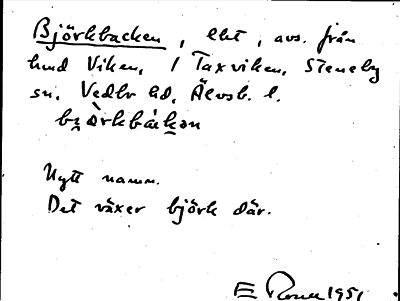 Björkbacken, lht, avs. från
hmd Viken, 1 Taxviken, Steneby
sn. Vedbo hd, Älvsb. l.
bjö̀rkbákən
Nytt namn.
Det växer björk där.
E 1951